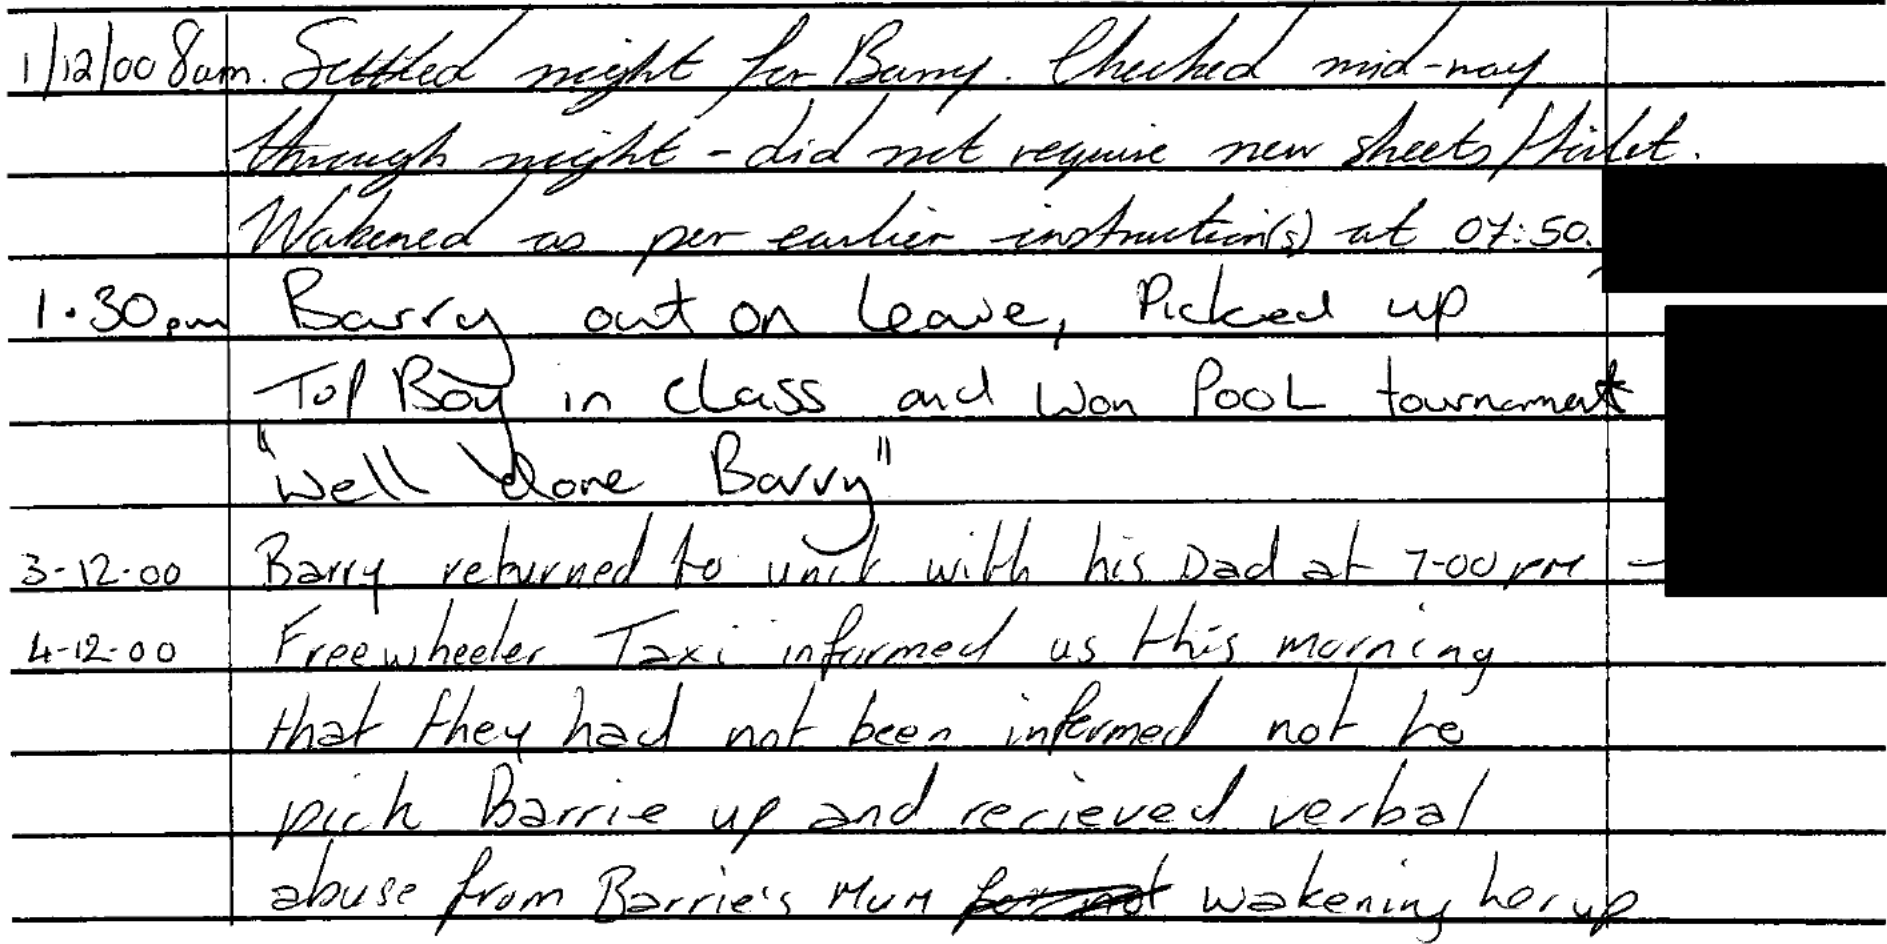 1/12/00 8am. Settled night for Barry. Checked mid-way
through night - did not require new sheets/toilet.
Wakened as per earlier instruction(s) at 07:50.
1.30pm Barry out on leave, Picked up
Top Boy in class and won Pool tournament
"Well done Barry"
3-12-00 Barry returned to unit with his Dad at 7-00pm -
4-12-00 Freewheeler Taxi informed us this morning
that they had not been informed not to
pick Barrie up and recieved verbal
abuse from Barrie's Mum for not wakening her up